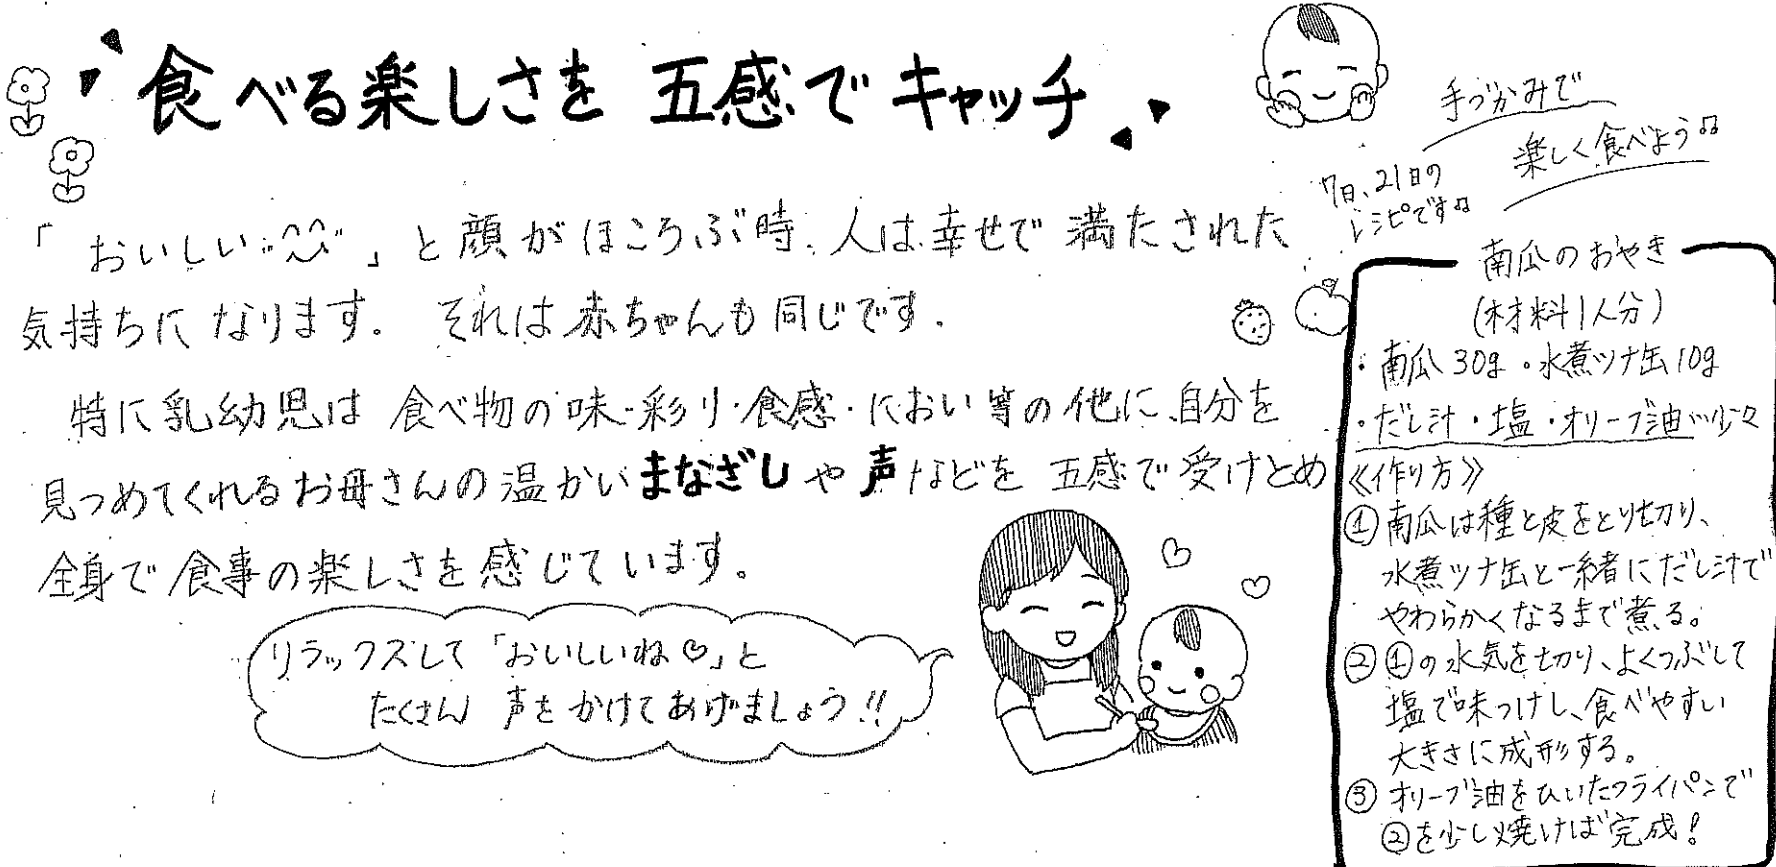 食べる楽しさを 五感でキャッチ
「おいしい」と顔がほころぶ時、人は幸せで満たされた
気持ちになります。それは赤ちゃんも同じです。
特に乳幼児は食べ物の味・彩り・食感・におい等の他に、自分を
見つめてくれるお母さんの温かいまなざしや声などを五感で受けとめ
全身で食事の楽しさを感じています。
リラックスして「おいしいね♡」と
たくさん声をかけてあげましょう!!
手づかみで
楽しく食べよう♫
7日、21日の
レシピです♫
南瓜のおやき
(材料1人分)
・南瓜30g ・水煮ツナ缶10g
・だし汁・塩・オリーブ油…少々
《作り方》
①南瓜は種と皮をとり切り、
水煮ツナ缶と一緒にだし汁で
やわらかくなるまで煮る。
②①の水気を切り、よくつぶして
塩で味つけし、食べやすい
大きさに成形する。
③オリーブ油をひいたフライパンで
②を少し焼けば完成!